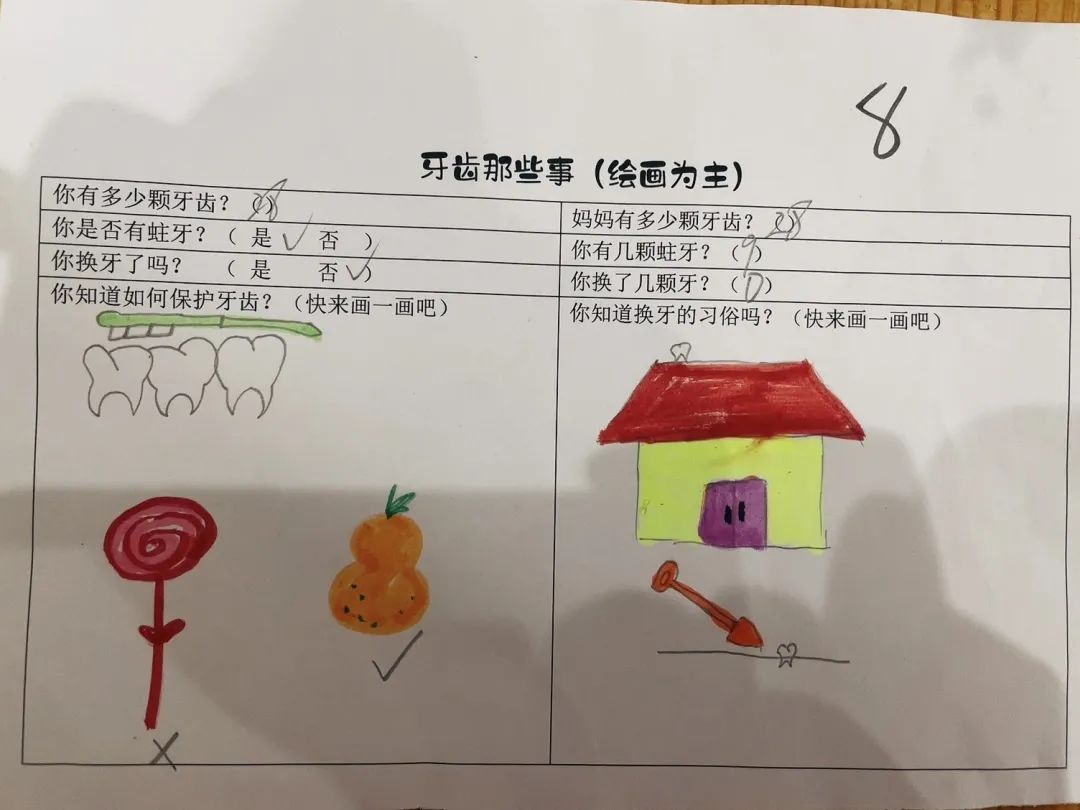 8
牙齿那些事（绘画为主）
你有多少颗牙齿？（28）
妈妈有多少颗牙齿？（28）
你是否有蛀牙？（ 是 ✓ 否 ）
你有几颗蛀牙？（9）
你换牙了吗？ （ 是 否 ✓）
你换了几颗牙？（0）
你知道如何保护牙齿？（快来画一画吧）
你知道换牙的习俗吗？（快来画一画吧）
✓
×